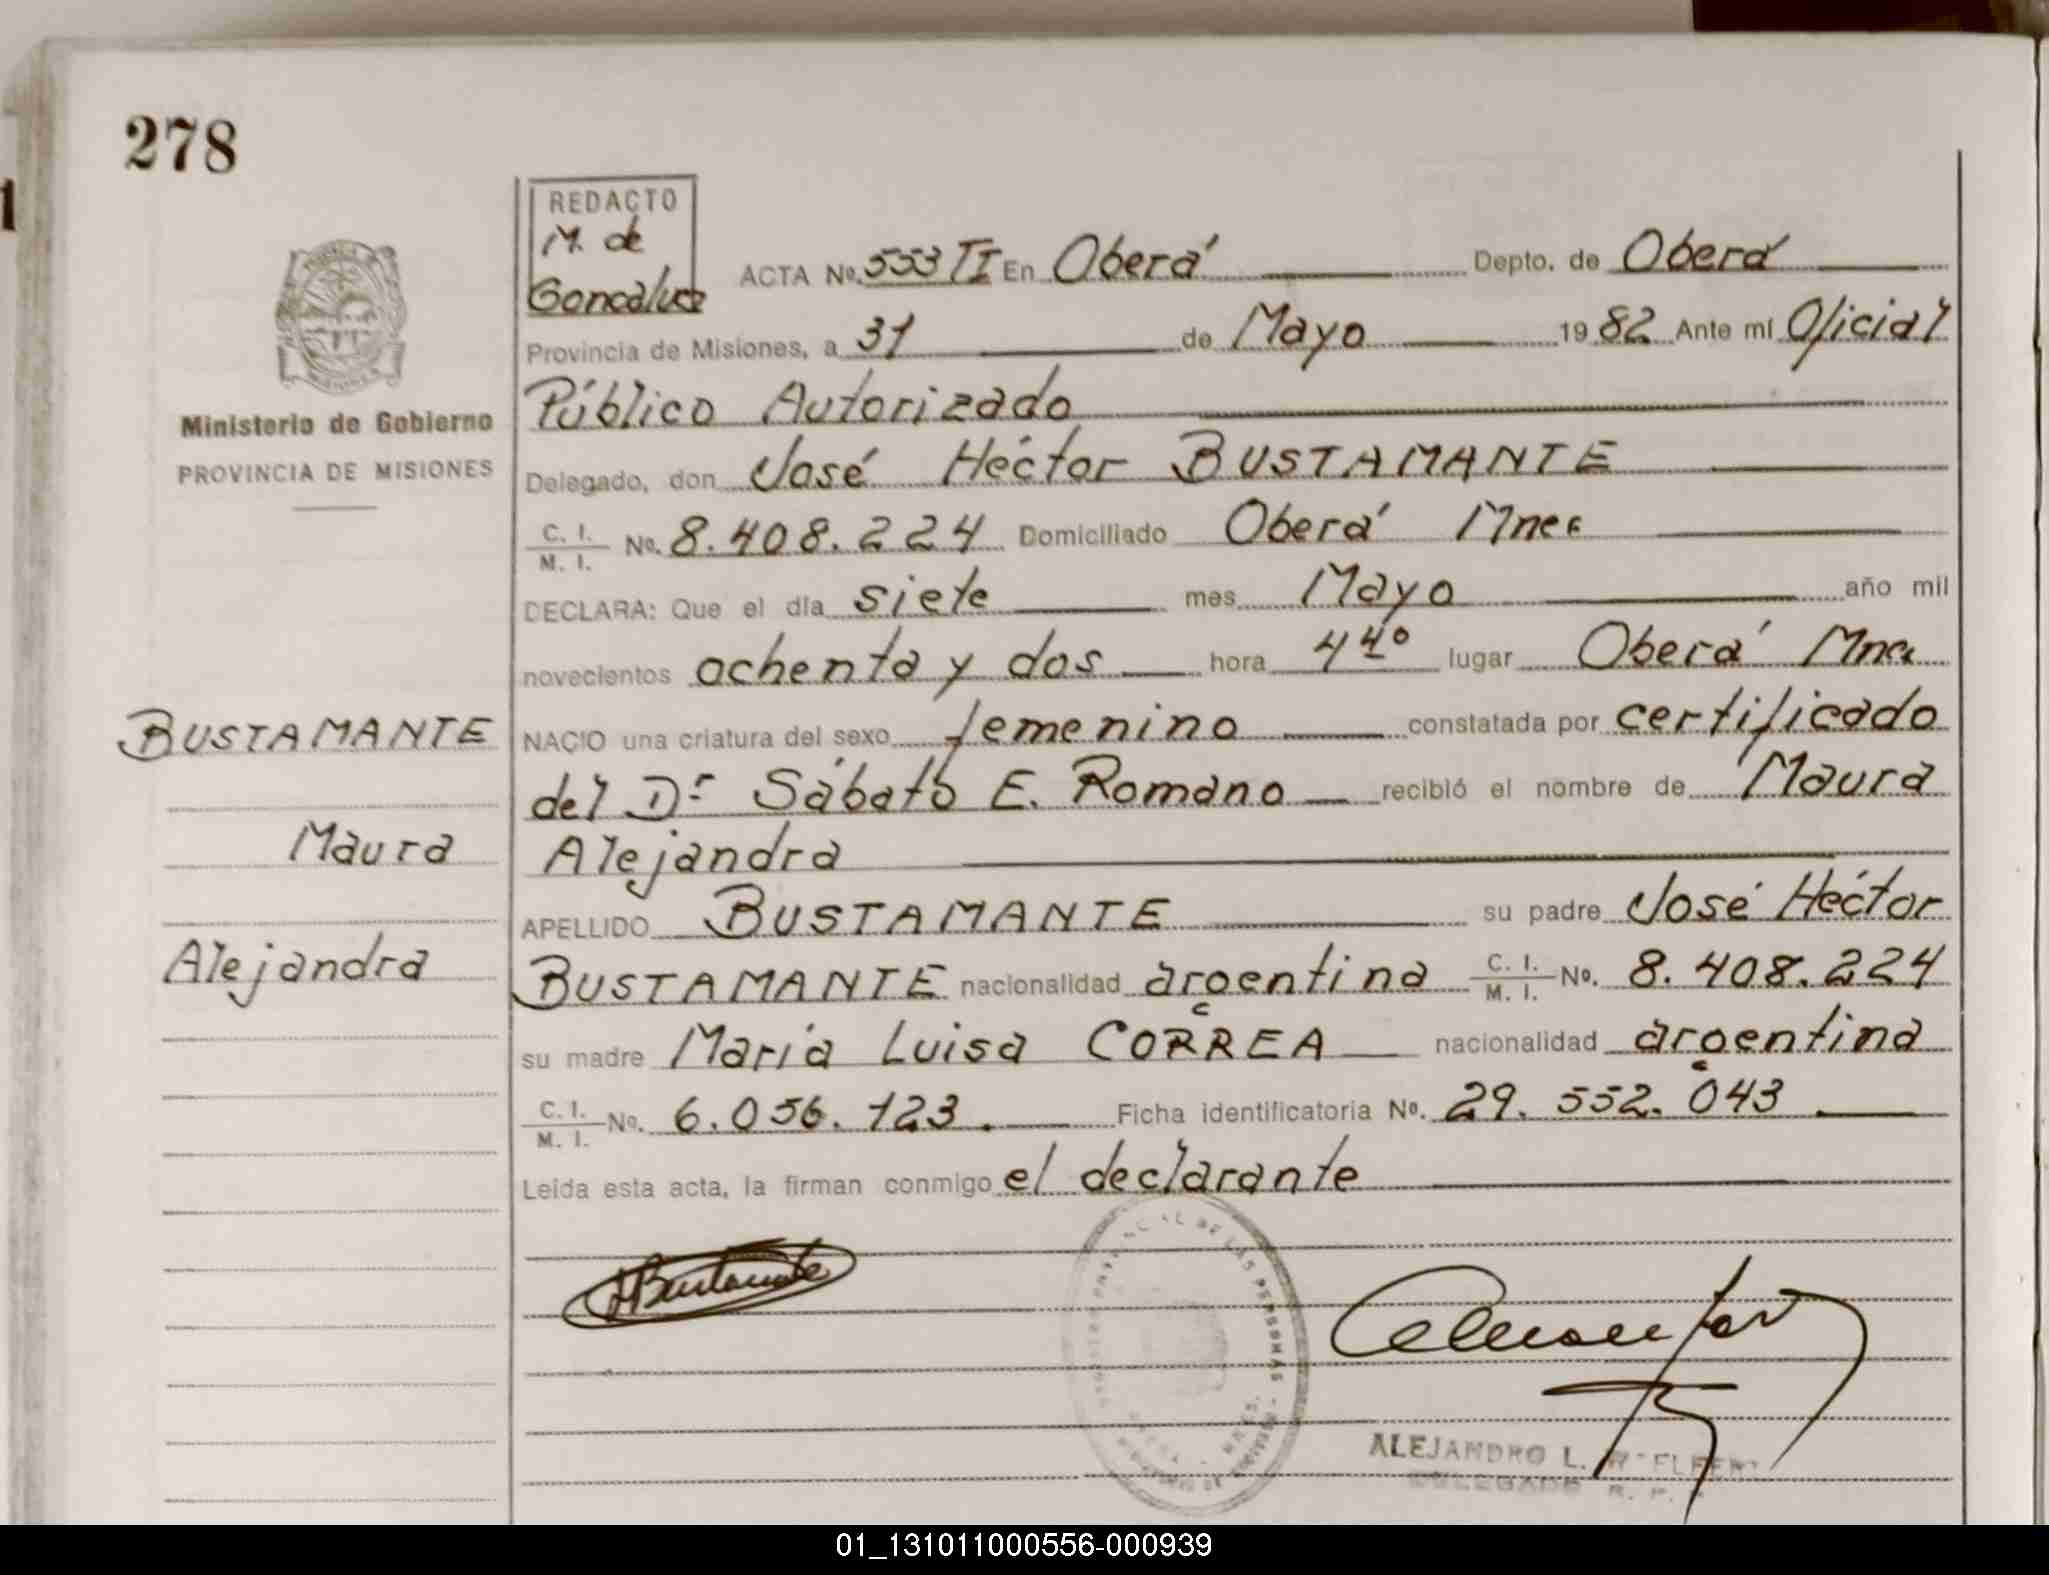 278
REDACTO
M. de
Goncalvez
ACTA No. 553 TI En Oberá Depto. de Oberá
Provincia de Misiones, a 31 de Mayo 1982 Ante mí Oficial
Público Autorizado
Ministerio de Gobierno
PROVINCIA DE MISIONES
Delegado, don José Héctor BUSTAMANTE
C. I. / M. I. No. 8.408.224 Domiciliado Oberá Mnes
DECLARA: Que el día siete mes Mayo año mil
novecientos ochenta y dos hora 4 40 lugar Oberá Mnes
BUSTAMANTE
Maura
Alejandra
NACIO una criatura del sexo femenino constatada por certificado
del Dr Sábato E. Romano recibió el nombre de Maura
Alejandra
APELLIDO BUSTAMANTE su padre José Héctor
BUSTAMANTE nacionalidad argentina C. I. / M. I. No. 8.408.224
su madre María Luisa CORREA nacionalidad argentina
C. I. / M. I. No. 6.056.123. Ficha identificatoria No. 29.552.043
Leída esta acta, la firman conmigo el declarante
HBustamante
DE LAS PERSONAS
ALEJANDRO L.
DELEGADO R. P.
01_131011000556-000939